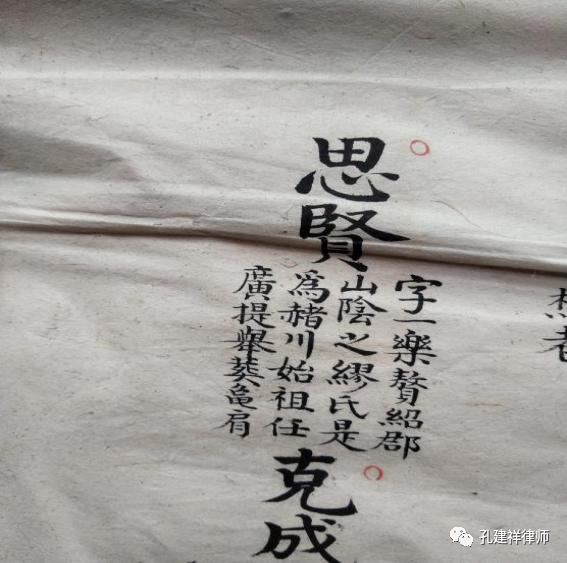 思賢
字一樂贅紹郡
山陰之繆氏是
爲赭川始祖任
廣提舉葬龜肩
克成
孔建祥律师